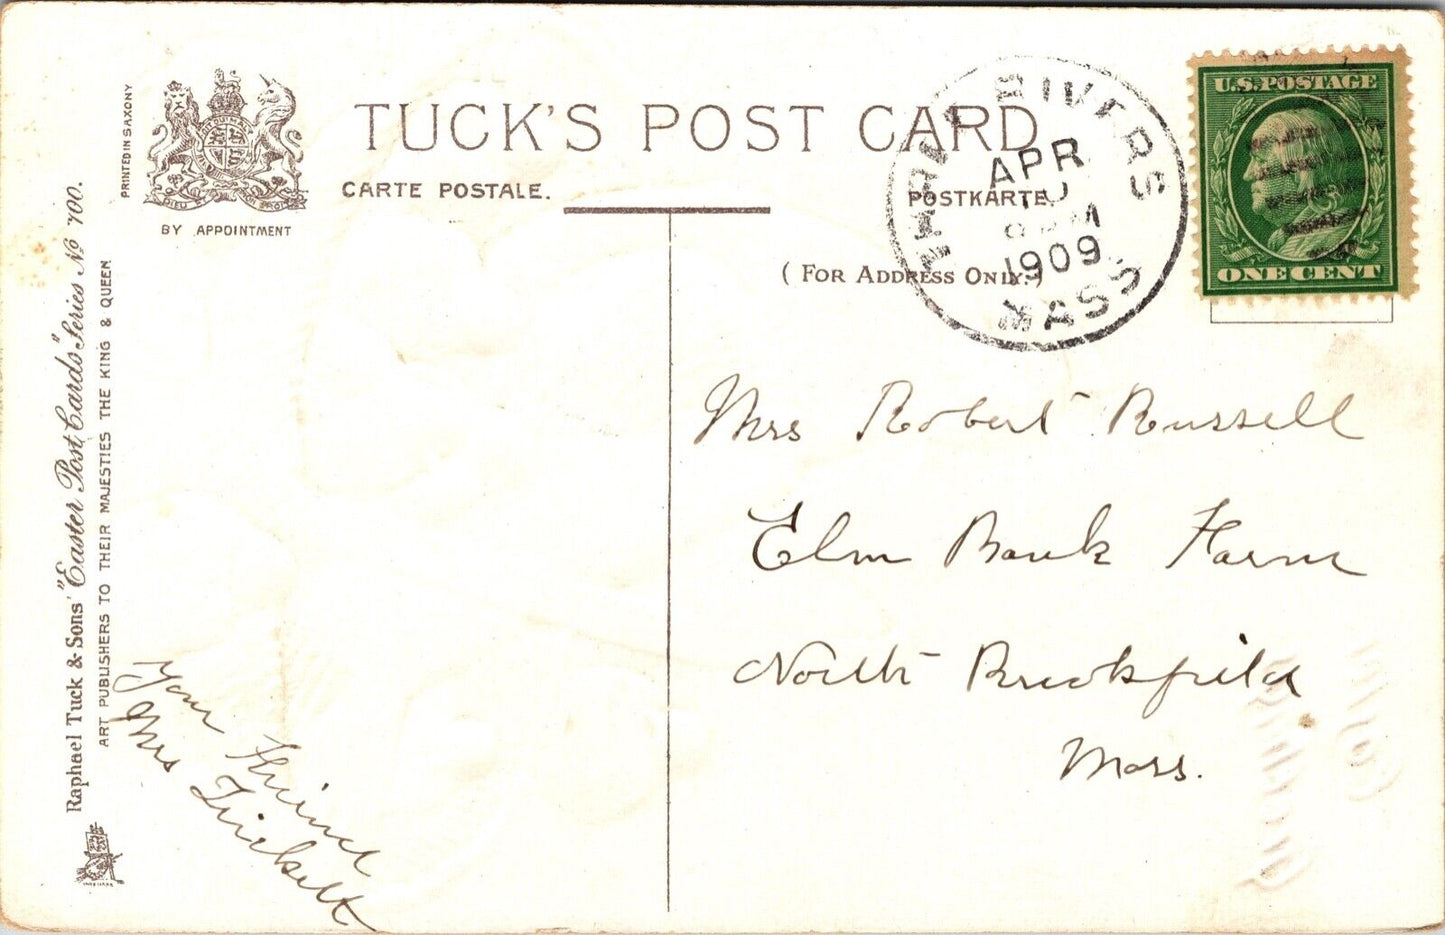 TUCK'S POST CARD
CARTE POSTALE.
POSTKARTE
(FOR ADDRESS ONLY.)
PRINTED IN SAXONY
DIEU ET MON DROIT
BY APPOINTMENT
Raphael Tuck & Sons' "Easter Post Cards" Series No 700.
ART PUBLISHERS TO THEIR MAJESTIES THE KING & QUEEN
THREE RIVERS
APR
10
PM
1909
MASS
U.S. POSTAGE
ONE CENT
Mrs Robert Russell
Elm Bank Farm
North Brookfield
Mass.
Your Friend
Mrs Trickett